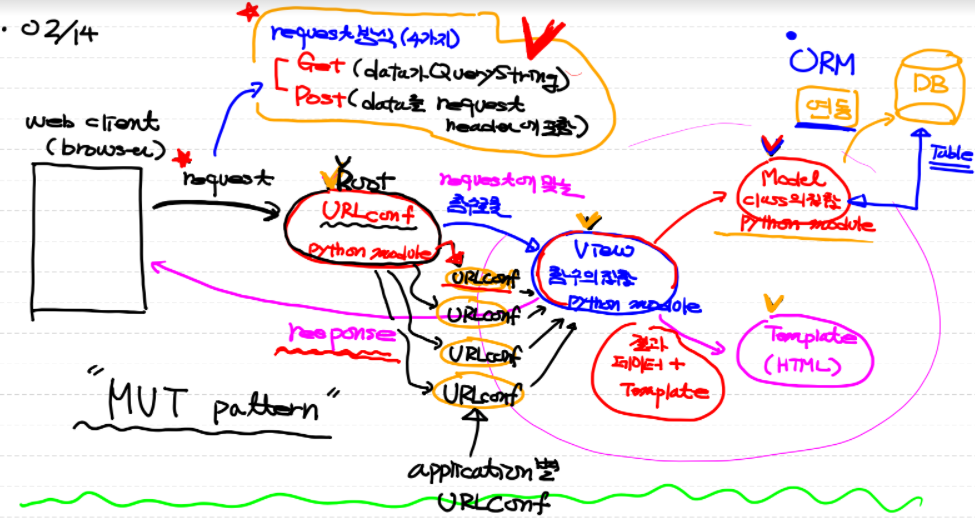 · 02/14
request방식(4가지)
Get (data가 QueryString)
Post (data를 request
header에 포함)
ORM
연동
DB
Table
web client
(browser)
request
Root
URLconf
python module
request에 맞는
함수호출
View
함수의집합
python module
Model
class의집합
python module
URLconf
URLconf
URLconf
URLconf
response
결과
데이터 +
Template
Template
(HTML)
"MVT pattern"
application별
URLconf